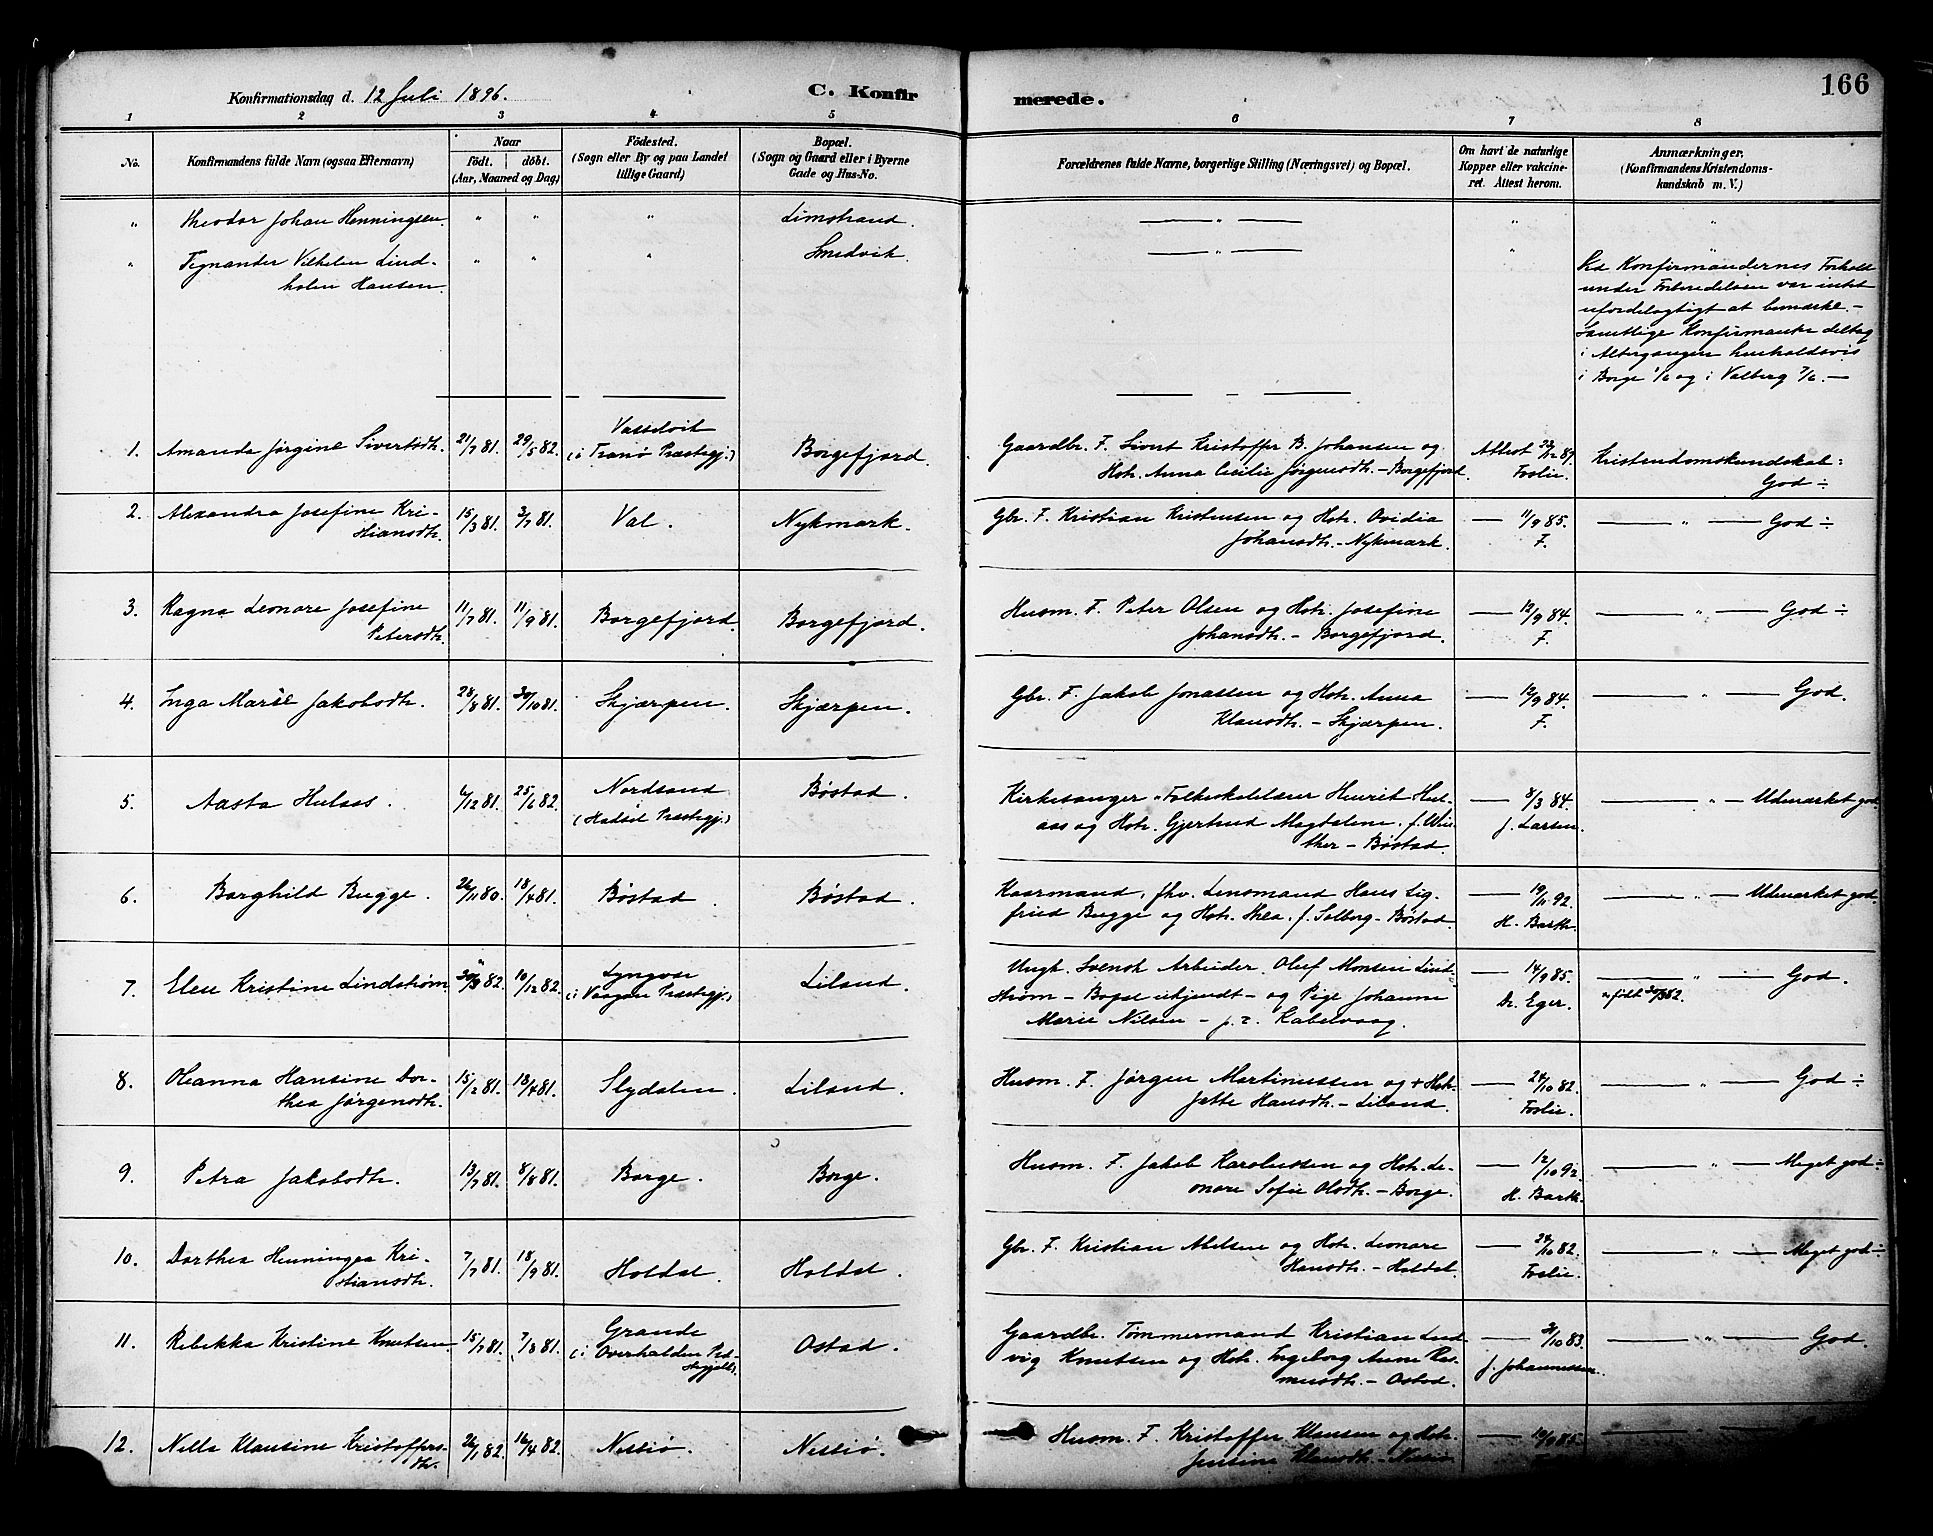 166
Konfirmationsdag d. 12 Juli 1896. C. Konfirmerede.
1 2 3 4 5 6 7 8
No. Konfirmandens fulde Navn (ogsaa Efternavn) Naar födt. döbt. (Aar, Maaned og Dag) Födested. (Sogn eller By og paa Landet tillige Gaard) Bopæl. (Sogn og Gaard eller i Byerne Gade og Hus-No. Forældrenes fulde Navne, borgerlige Stilling (Næringsvei) og Bopæl. Om havt de naturlige Kopper eller vakcineret. Attest herom. Anmærkninger, (Konfirmandens Kristendomskundskab m. V.)
" Theodor Johan Henningsen. " " " Limstrand. — " — " "
" Tegnander Vilhelm Lind- " " " Smedvik. — " — " "
holm Hansen.
Ved Konfirmandernes Forhold
under Forberedelsen var intet
ufordelagtigt at bemærke. –
Samtlige Konfirmanter deltog
i Altergangen husholdsvis
i Borge 1/6 og i Valberg 7/6. —
1. Amanda Jørgine Sivertsdtr. 21/7 81. 29/5 82. Vasselvik (i Tranø Præstegj.) Borgefjord. Gaardbr. F. Sivert Kristoffer B. Johansen og
Hstr. Anna Cecilie Jørgensdtr. – Borgefjord. Attest 22/12 87. Foslie. Kristendomskundskab: God ÷
2. Alexandra Josefine Kri-
stiansdtr. 15/3 81. 3/7 81. Val. Nykmark. Gbr. F. Kristian Kristensen og Hstr. Ovidia
Johansdtr. – Nykmark. — 11/9 85. F. — " — God ÷
3. Ragna Leonore Josefine
Petersdtr. 11/7 81. 11/9 81. Borgefjord. Borgefjord. Husm. F. Peter Olsen og Hstr. Josefine
Johansdtr. – Borgefjord. — 12/9 84. F. — " — God ÷
4. Inga Marie Jakobsdtr. 28/8 81. 30/10 81. Skjærpen. Skjærpen. Gbr. F. Jakob Jonassen og Hstr. Anna
Klausdtr. – Skjærpen. — 12/9 84. F. — " — God.
5. Aasta Hulaas. 6/12 81. 25/6 82. Nordsand (Hadsel Præstegj.) Bøstad. Kirkesanger " Folkeskolelærer Henrik Hul-
aas og Hstr. Gjertrud Magdalene, f. Win-
ther – Bøstad. — 8/3 84. J. Larsen. — " — Udmærket god.
6. Borghild Bugge. 26/11 80. 18/4 81. Bøstad. Bøstad. Kaarmand, fhv. Lensmand Hans Sig-
fried Bugge og Hstr. Thea, f. Solberg – Bøstad. — 19/11 92. H. Barth. — " — Udmærket god.
7. Elen Kristine Lindstrøm 30/9 82. 10/12 82. Lyngvær (i Vaagan Præstegj.) Liland. Ungk. Svensk Arbeider Oluf Monsen Lind-
strøm – Bopæl ubekjendt – og Pige Johanne
Marie Nilsen – p. t. Kabelvaag. — 14/9 85. Dr. Eger. — " — God.
" født 30/9 82.
8. Oleanna Hansine Dor-
thea Jørgensdtr. 15/2 81. 18/4 81. Slydalen. Liland. Husm. F. Jørgen Martinussen og + Hstr.
Jette Hansdtr. – Liland. — 24/10 82. Foslie. — " — God ÷
9. Petra Jakobsdtr. 13/7 81. 8/8 81. Borge. Borge. Husm. F. Jakob Karolussen og Hstr. Le-
onore Sofie Olsdtr. – Borge. — 12/10 92. H. Barth. — " — Meget god ÷
10. Dorthea Henninga Kri-
stiansdtr. 7/7 81. 18/9 81. Holdal. Holdal. Gbr. F. Kristian Abelsen og Hstr. Leonore
Hansdtr. – Holdal. — 24/10 82. Foslie. — " — Meget god ÷
11. Rebekka Kristine Knutsen 15/7 81. 7/8 81. Grande (i Overhalden Præstegjeld.) Ostad. Gaardbr. Tømmermand Kristian Lud-
vig Knutsen og Hstr. Ingeborg Anne Ras-
musdtr. – Ostad. — 31/10 83. J. Johannessen. — " — God.
12. Nella Klausine Kristoffers-
dtr. 26/1 82. 16/4 82. Nessiø. Nessiø. Husm. F. Kristoffer Klausen og Hstr.
Jensine Klausdtr. – Nessiø — 10/9 85.